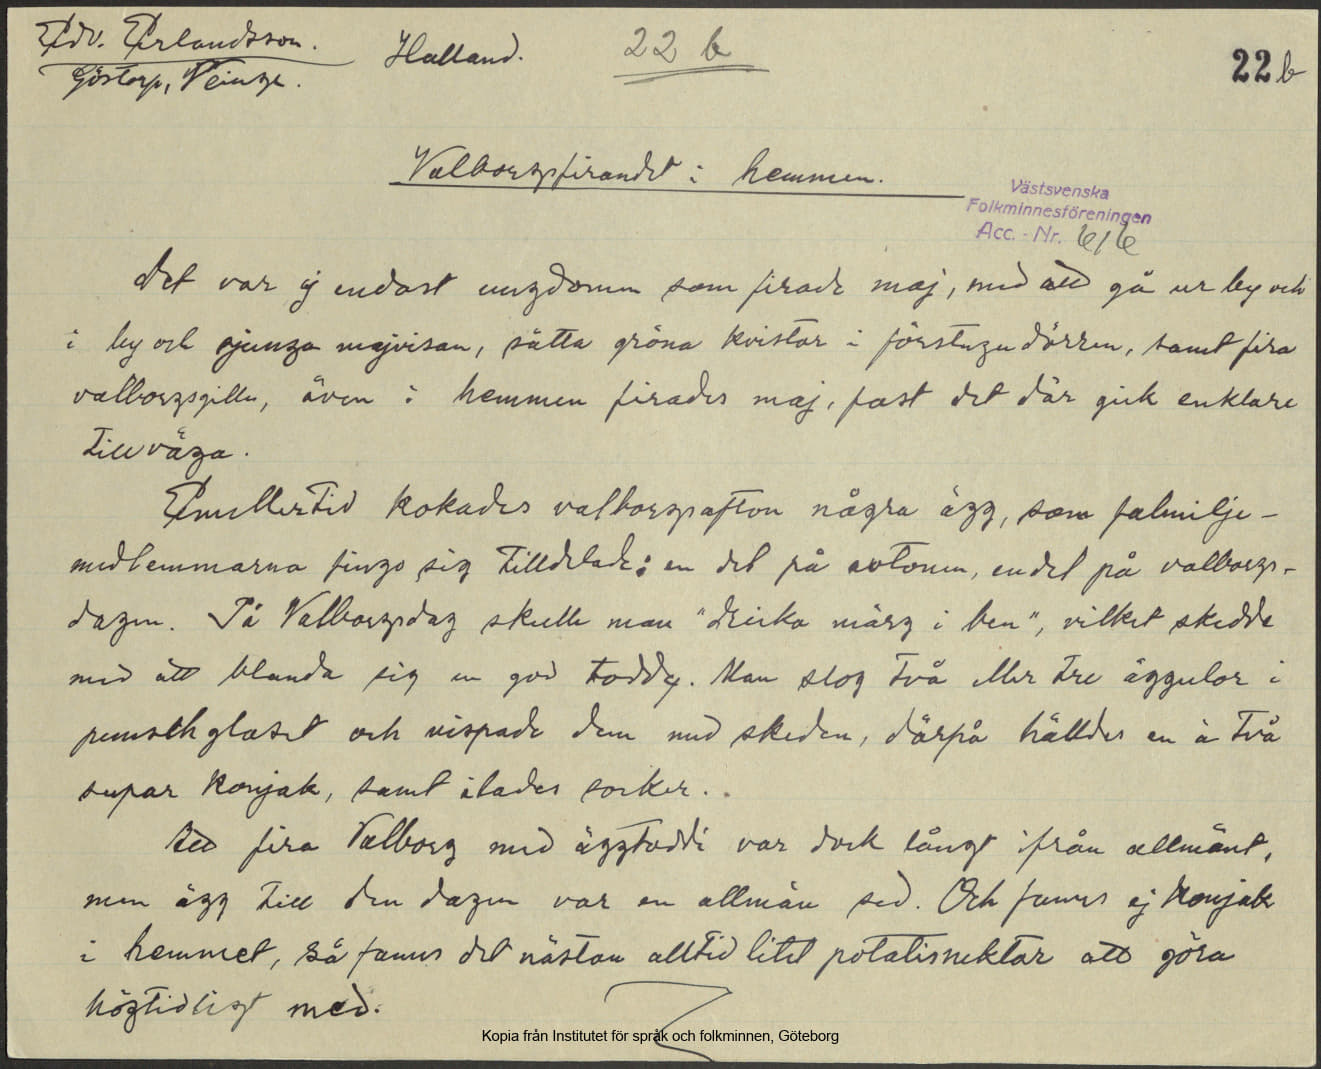 Edv. Erlandsson.
Göstorp, Veinge.
Halland.
22 b
22 b
Valborgsfirandet i hemmen.
Västsvenska
Folkminnesföreningen
Acc. - Nr. 616
Det var ej endast ungdomen som firade maj, med att gå ur by och
i by och sjunga majvisan, sätta gröna kvistar i förstugudörren, samt fira
valborgsgille, även i hemmen firades maj, fast det där gick enklare
tillväga.
Emellertid kokades valborgsafton några ägg, som familje-
medlemmarna fingo sig tilldelade; en del på aftonen, en del på valborgs-
dagen. På Valborgsdag skulle man "dricka märg i ben", vilket skedde
med att blanda sig en god toddy. Man slog två eller tre äggulor i
punschglaset och vispade dem med skeden, därpå hälldes en à två
supar konjak, samt ilades socker.
Att fira Valborg med äggtoddi var dock långt ifrån allmänt,
men ägg till den dagen var en allmän sed. Och fanns ej konjak
i hemmet, så fanns det nästan alltid litet potatisnektar att göra
högtidligt med.
Kopia från Institutet för språk och folkminnen, Göteborg